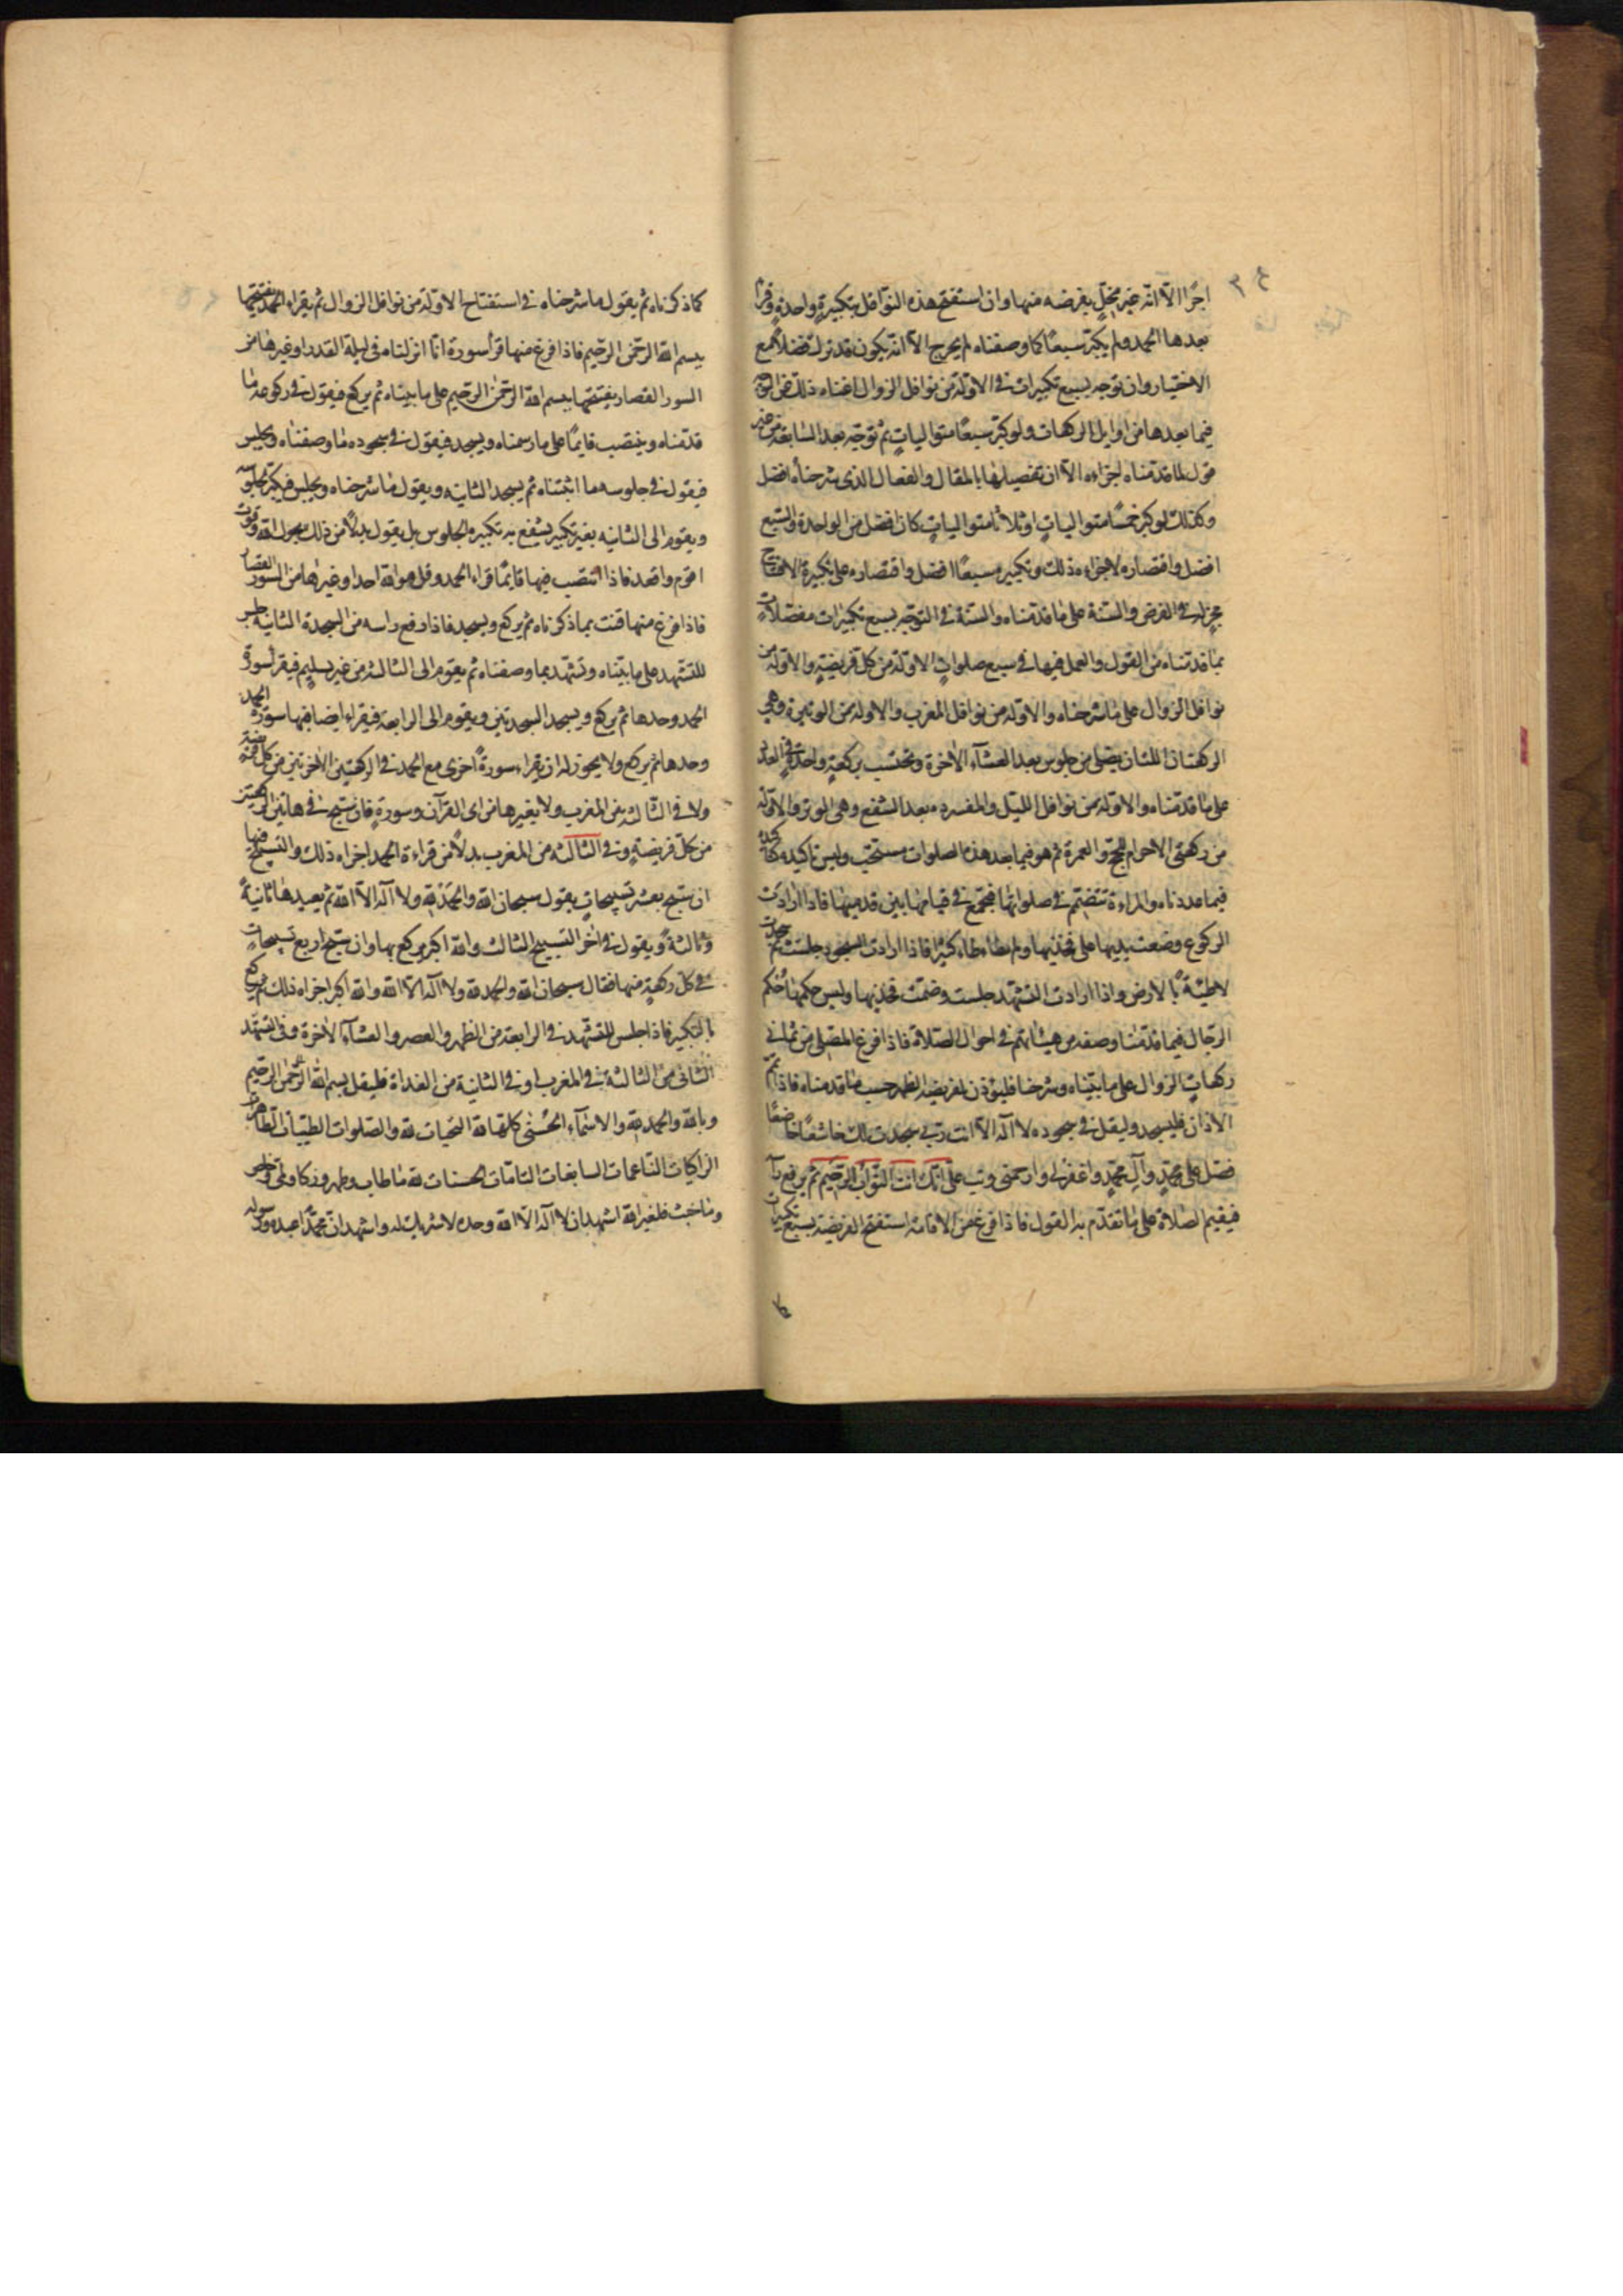 اجرا الا انه غير مخل بفرضه منها وان استفتح هذه النوافل بتكبيرة واحدة وقرأ
بعدها الحمد ولم يكبر سبعا كما وصفناه لم يحرج الا انه يكون قد ترك فضلا مع
الاختيار وان توجه بسبع تكبيرات في الاولة من نوافل الزوال اغناه ذلك عن التوجه
فيما بعدها من اوايل الركعات ولو كبر سبعا متواليات ثم توجه بعد السابعة من غير
قول لما قدمناه لجزاءه الا ان تفصيلها بالمقال والفعال الذي شرحناه افضل
وكذلك لو كبر خمسا متواليات او ثلاثا متواليات كان افضل من الواحدة والسبع
افضل واقتصاره لاجزاءه ذلك وتكبيره سبعا افضل واقتصاره على تكبيرة الافتتاح
مجز له في الفرض والسنة على ما قدمناه والسنة في التوجه بسبع تكبيرات مفصلات
بما قدمناه من القول والعمل فيها في سبع صلوات الاولة من كل فريضة والاولة من
نوافل الزوال على ما شرحناه والاولة من نوافل المغرب والاولة من الوتيرة وهي
الركعتان اللتان يصلى من جلوس بعد العشآء الآخرة وتحتسب بركعة واحدة في العدد
على ما قدمناه والاولة من نوافل الليل والمفردة بعد الشفع وهي الوتر والاولة
من ركعتي الاحرام للحج والعمرة ثم هو فيما بعد هذه الصلوات مستحب وليس تاكيده كتاكيده
فيما عددناه والمراءة تنضم في صلواتها فتجمع في قيامها بين قدميها فاذا ارادت
الركوع وضعت يديها على فخذيها ولم تطأطأ كثيرا فاذا ارادت السجود جلست ثم سجدت
لاطئة بالارض واذا ارادت التشهد جلست وضمت فخذيها وليس حكمها حكم
الرجال فيما قدمنا وصفه من هيئاتهم في احوال الصلاة فاذا فرغ المصلي من ثماني
ركعات الزوال على ما بيناه وشرحنا فليؤذن لفريضة الظهر حسب ما قدمناه فاذا تمم
الاذان فليسجد وليقل في سجوده لا اله الا انت ربي سجدت لك خاشعا خاضعا
فصل على محمد وآل محمد واغفر لي وارحمني وتب علي انك انت التواب الرحيم ثم يرفع رأ
فيقيم الصلاة على ما تقدم به القول فاذا فرغ من الاقامة استفتح الفريضة بسبع تكبيرات
كما ذكرناه ثم يقول ما شرحناه في استفتاح الاولة من نوافل الزوال ثم يقراء الحمد يفتتحها
ببسم الله الرحمن الرحيم فاذا فرغ منها قرأ سورة انا انزلناه في ليلة القدر او غيرها من
السور القصار يفتتحها ببسم الله الرحمن الرحيم على ما بيناه ثم يركع فيقول في ركوعه ما
قدمناه وينتصب قايما على ما رسمناه ويسجد فيقول في سجوده ما وصفناه ويجلس
فيقول في جلوسه ما اثبتناه ثم يسجد الثانية ويقول ما شرحناه ويجلس فيكبر لجلوسه
ويقوم الى الثانية بغير تكبير يشفع به تكبيرة الجلوس بل يقول بدلا من ذلك بحول الله وقوته
اقوم واقعد فاذا انتصب فيها قايما قراء الحمد وقل هو الله احد او غيرها من السور القصار
فاذا فرغ منها قنت بما ذكرناه ثم يركع ويسجد فاذا رفع راسه من السجدة الثانية جلس
للتشهد على ما بيناه وتشهد بما وصفناه ثم يقوم الى الثالثة من غير تسليم فيقرأ سورة
الحمد وحدها ثم يركع ويسجد السجدتين ويقوم الى الرابعة فيقراء ايضا فيها سورة الحمد
وحدها ثم يركع ولا يجوز له ان يقراء سورة اخرى مع الحمد في الركعتين الاخرتين من كل فريضة
ولا في الثالثة من المغرب ولا بغيرها من آى القرآن وسورة فان سبح في هاتين الركعتين
من كل فريضة وفي الثالثة من المغرب بدلا من قراءة الحمد اجزاه ذلك والتسبيح فيها
ان يسبح بعشر تسبيحات يقول سبحان الله والحمد لله ولا اله الا الله ثم يعيدها ثانية
وثالثة ويقول في آخر التسبيح الثالث والله اكبر يركع بها وان سبح اربع تسبيحات
في كل ركعة منها فقال سبحان الله والحمد لله ولا اله الا الله والله اكبر اجزاه ذلك ثم يركع
بالتكبير فاذا جلس للتشهد في الرابعة من الظهر والعصر والعشآء الآخرة وفي التشهد
الثاني من الثالثة في المغرب او في الثانية من الغداة فليقل بسم الله الرحمن الرحيم
وبالله والحمد لله والاسمآء الحسنى كلها لله التحيات لله والصلوات الطيبات الطاهرات
الزاكيات الناعمات السابغات التامات الحسنات لله ما طاب وطهر وزكا ونمى وخلص
وما خبث فلغير الله اشهد ان لا اله الا الله وحده لا شريك له واشهد ان محمدا عبده ورسوله